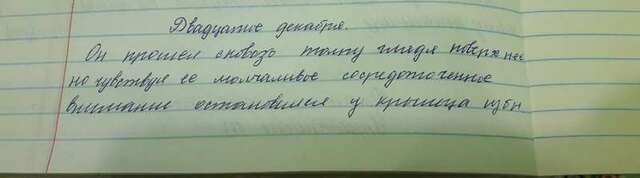 Двадцатые декабря.
Он прошел сквозь толпу глядя поверх нее
но чувствуя ее молчаливое сосредоточенное
внимание остановился у крыльца избы